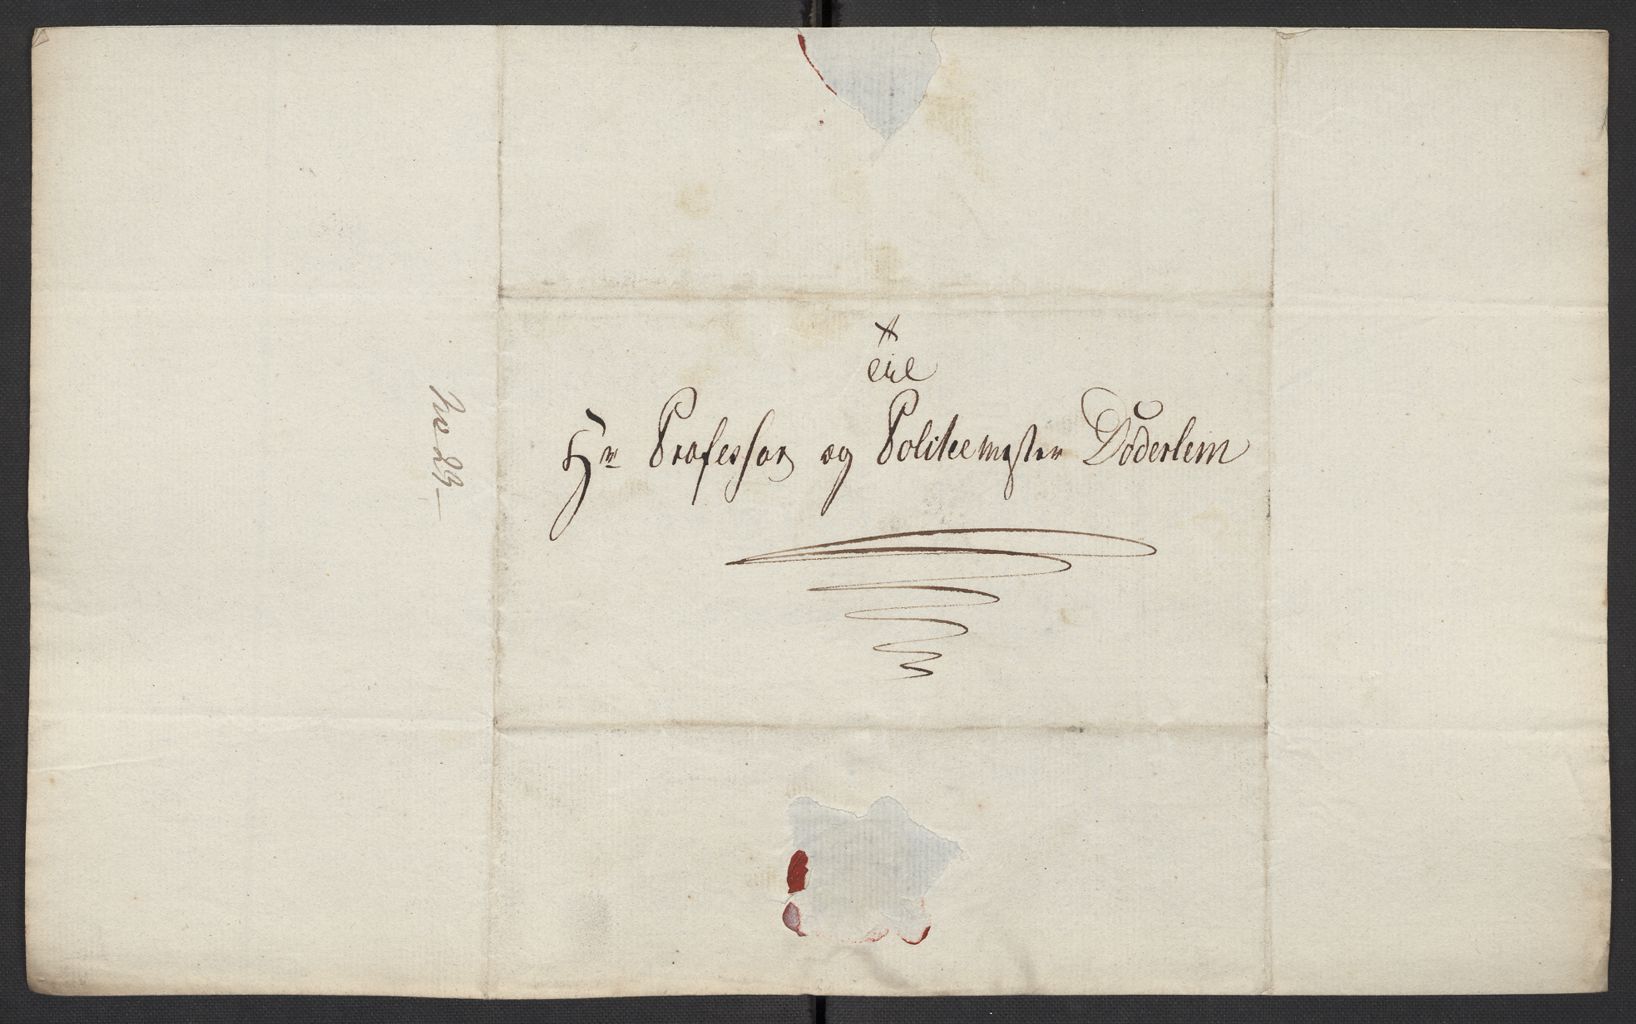 Til
Hr Professor og Politiemester Döderlein
No 23